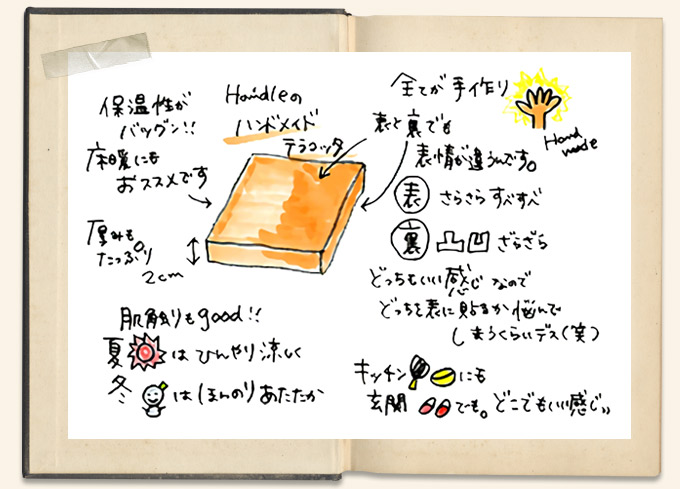 保温性が
バツグン!!
床暖にも
おススメです
厚みも
たっぷり
2cm
Handleの
ハンドメイド
テラコッタ
全てが手作り
Hand
made
表と裏でも
表情が違うんです。
表 さらさらすべすべ
裏 凸凹 ざらざら
どっちもいい感じなので
どっちを表に貼るか悩んで
しまうくらいデス(笑)
肌触りもgood!!
夏 はひんやり涼しく
冬 はほんのりあたたか
キッチン にも
玄関 でも。どこでもいい感じ〃